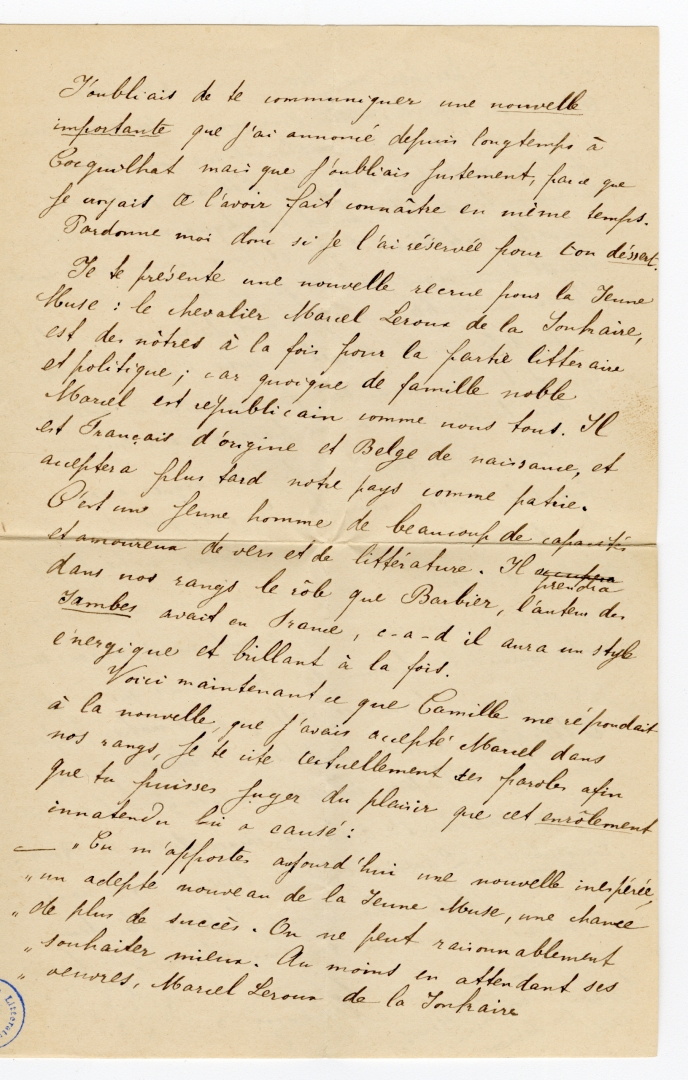 J'oubliais de te communiquer une nouvelle
importante que j'ai annoncé depuis longtemps à
Cocquilhat mais que j'oubliais justement, parce que
je croyais l'avoir fait connaître en même temps.
Pardonne moi donc si je l'ai réservée pour ton déssert.
Je te présente une nouvelle recrue pour la Jeune
Muse : le chevalier Marcel Leroux de la
est des nôtres à la fois pour la partie littéraire
et politique ; car quoique de famille noble
Marcel est republicain comme nous tous. Il
est Français d'origine et Belge de naissance, et
acceptera plus tard notre pays comme patrie.
C'est une jeune homme de beaucoup de capacités
et amoureux de vers et de littérature. Il prendra
dans nos rangs le rôle que Barbier, l'auteur des
Iambes avait en France, c-a-d il aura un style
énergique et brillant à la fois.
Voici maintenant ce que Camille me répondait
à la nouvelle, que j'avais accepté Marcel dans
nos rangs, je te cite textuellement ses paroles afin
que tu puisses juger du plaisir que cet enrôlement
innatendu lui a causé :
— "Tu m'apportes aujourd'hui une nouvelle inespérée,
" un adepte nouveau de la Jeune Muse, une chance
" de plus de succès. On ne peut raisonnablement
" souhaiter mieux. Au moins en attendant ses
" oeuvres, Marcel Leroux de la